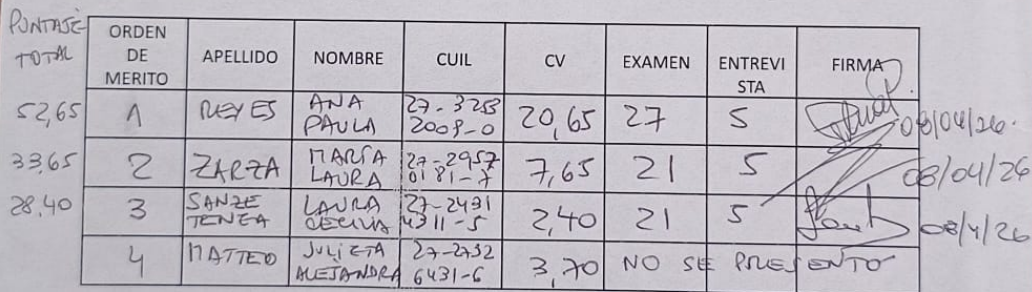 PUNTAJE TOTAL | ORDEN DE MERITO | APELLIDO | NOMBRE | CUIL | CV | EXAMEN | ENTREVISTA | FIRMA
52,65 | 1 | REYES | ANA PAULA | 27-3253 2009-0 | 20,65 | 27 | 5 | 08/04/26.
33,65 | 2 | ZARZA | MARIA LAURA | 27-2957 0181-7 | 7,65 | 21 | 5 | 08/04/26
28,40 | 3 | LAURA CECILIA | 27-2431 4311-5 | 2,40 | 21 | 5 | 08/4/26
4 | MATTEO | JULIETA ALEJANDRA | 27-2732 6431-6 | 3,70 | NO SE PRESENTO